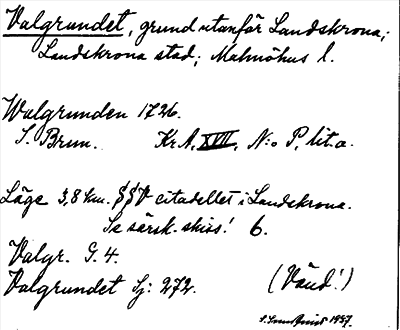 Valgrundet, grund utanför Landskrona;
Landskrona stad; Malmöhus l.
Walgrunden 1726.
S. Brun. Kr.A. XVII, N:o P, lit. a.
Läge 3,8 km. SSV citadellet i Landskrona.
Se särsk. skiss! 6.
Valgr. G. 4.
Valgrundet Sj: 272.
(Vänd!)
1937.